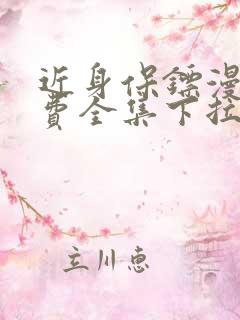 近身保镖漫
费全集下拉
立川惠